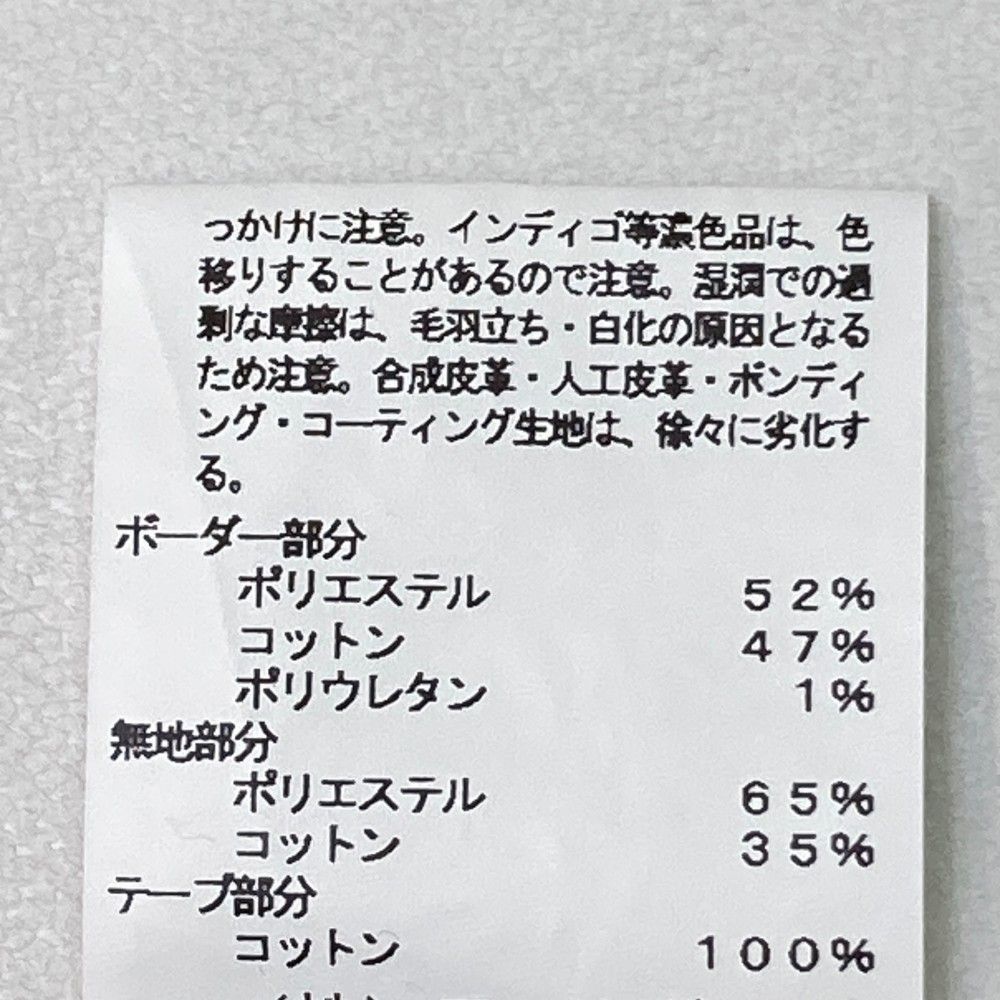 っかけに注意。インディゴ等濃色品は、色
移りすることがあるので注意。湿潤での過
剰な摩擦は、毛羽立ち・白化の原因となる
ため注意。合成皮革・人工皮革・ボンディ
ング・コーティング生地は、徐々に劣化す
る。
ボーダー部分
ポリエステル ５２％
コットン ４７％
ポリウレタン １％
無地部分
ポリエステル ６５％
コットン ３５％
テープ部分
コットン １００％